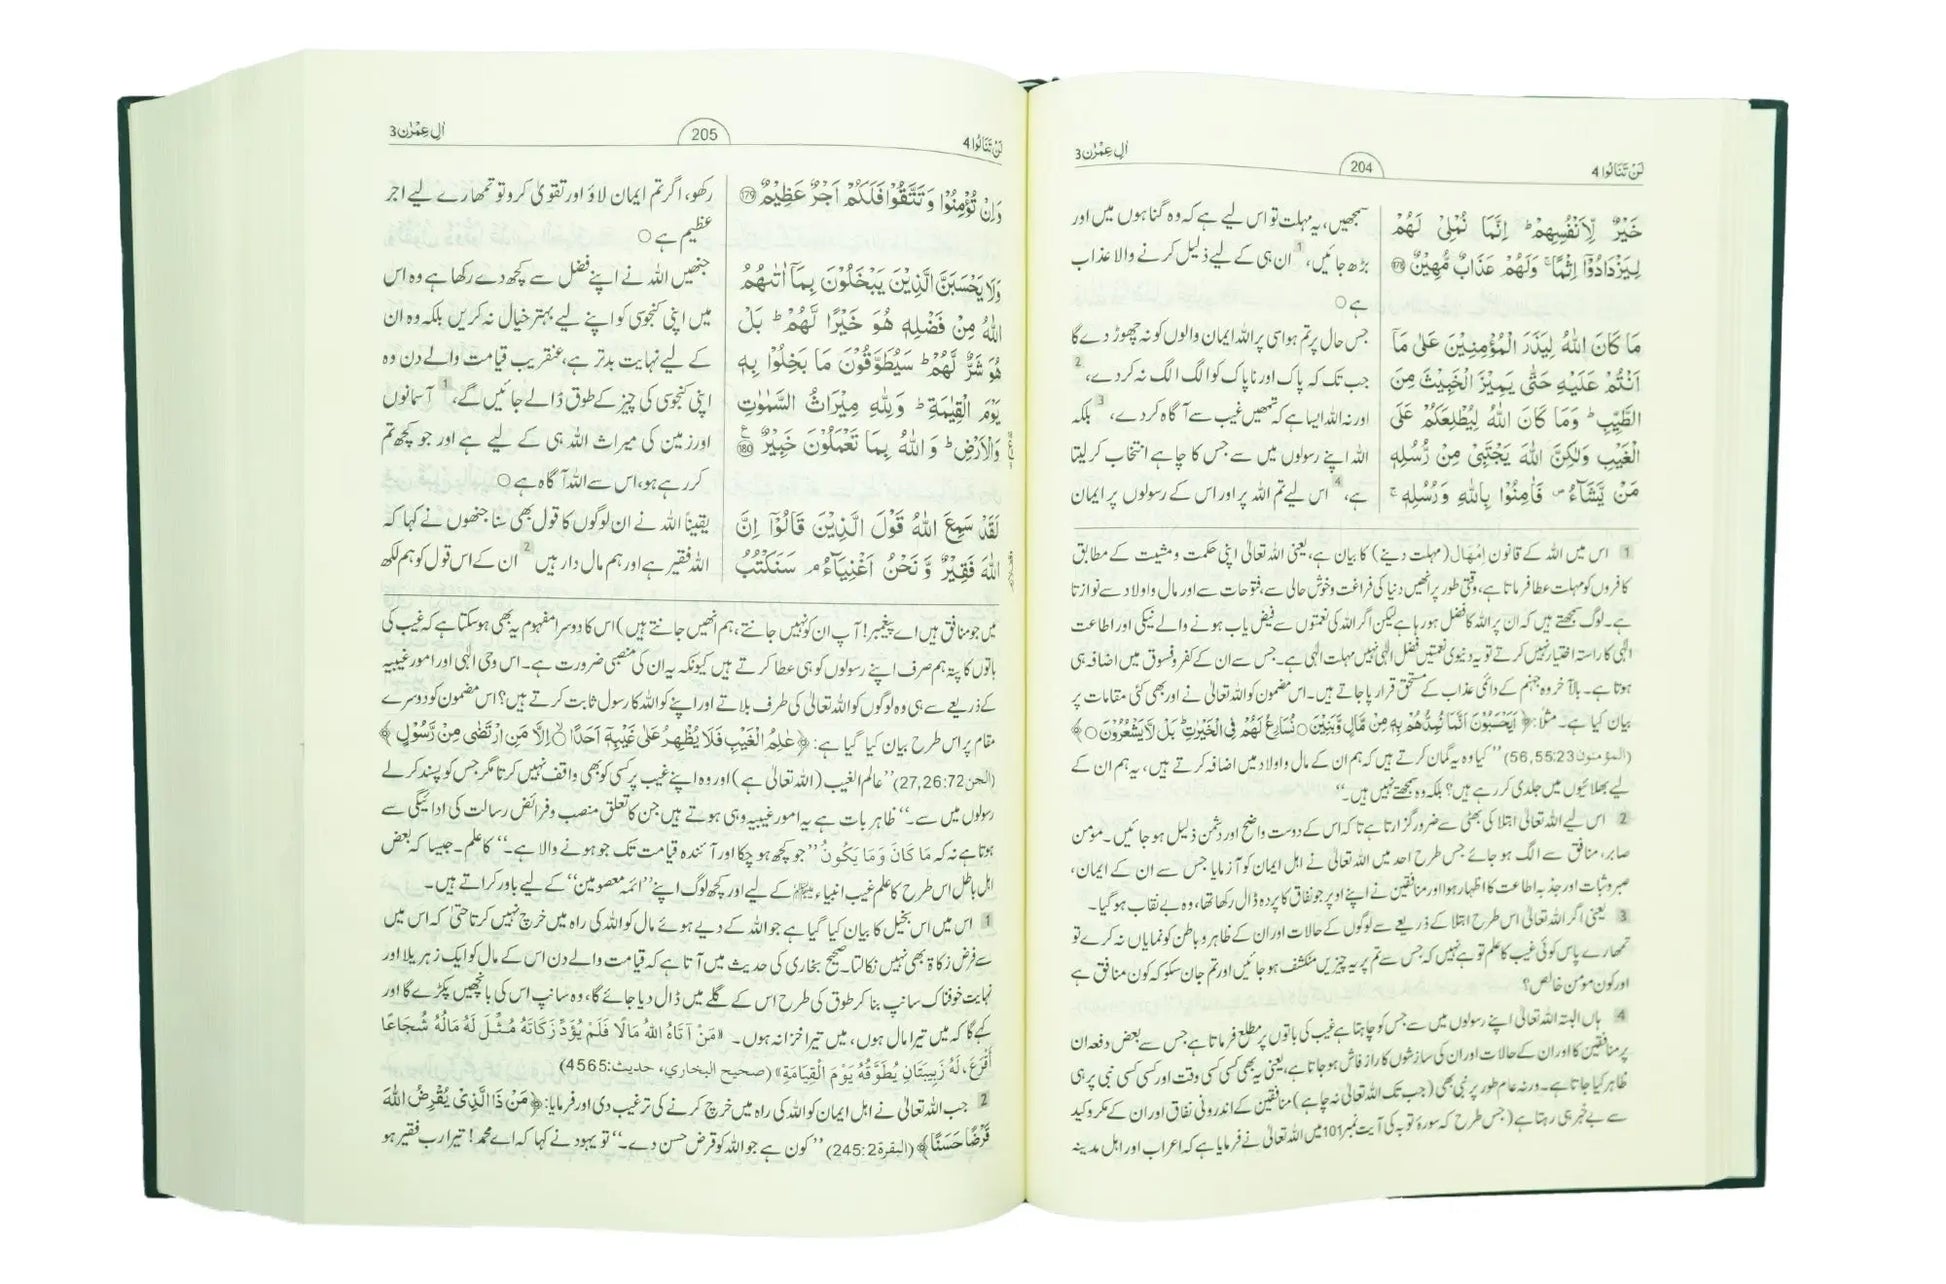 لَنْ تَنَالُوا 4
204
اٰلِ عِمْرٰن 3
خَيْرٌ لِّاَنْفُسِهِمْ ؕ اِنَّمَا نُمْلِيْ لَهُمْ
لِيَزْدَادُوْٓا اِثْمًا ۚ وَلَهُمْ عَذَابٌ مُّهِيْنٌ ﴿178﴾
مَا كَانَ اللّٰهُ لِيَذَرَ الْمُؤْمِنِيْنَ عَلٰى مَآ
اَنْتُمْ عَلَيْهِ حَتّٰى يَمِيْزَ الْخَبِيْثَ مِنَ
الطَّيِّبِ ؕ وَمَا كَانَ اللّٰهُ لِيُطْلِعَكُمْ عَلَى
الْغَيْبِ وَلٰكِنَّ اللّٰهَ يَجْتَبِيْ مِنْ رُّسُلِهٖ
مَنْ يَّشَآءُ ۪ فَاٰمِنُوْا بِاللّٰهِ وَرُسُلِهٖ ۚ
سمجھیں، یہ مہلت تو اس لیے ہے کہ وہ گناہوں میں اور
بڑھ جائیں، 1 ان ہی کے لیے ذلیل کرنے والا عذاب
ہے ○
جس حال پر تم ہو اسی پر اللہ ایمان والوں کو نہ چھوڑ دے گا
جب تک کہ پاک اور ناپاک کو الگ الگ نہ کر دے، 2
اور نہ اللہ ایسا ہے کہ تمھیں غیب سے آگاہ کر دے، 3 بلکہ
اللہ اپنے رسولوں میں سے جس کا چاہے انتخاب کر لیتا
ہے، 4 اس لیے تم اللہ پر اور اس کے رسولوں پر ایمان
1 اس میں اللہ کے قانون اِمْهَال (مہلت دینے) کا بیان ہے، یعنی اللہ تعالیٰ اپنی حکمت و مشیت کے مطابق
کافروں کو مہلت عطا فرماتا ہے، وقتی طور پر انھیں دنیا کی فراغت و خوش حالی سے، فتوحات سے اور مال و اولاد سے نوازتا
ہے۔ لوگ سمجھتے ہیں کہ ان پر اللہ کا فضل ہو رہا ہے لیکن اگر اللہ کی نعمتوں سے فیض یاب ہونے والے نیکی اور اطاعت
الٰہی کا راستہ اختیار نہیں کرتے تو یہ دنیوی نعمتیں فضل الٰہی نہیں مہلت الٰہی ہے۔ جس سے ان کے کفر و فسوق میں اضافہ ہی
ہوتا ہے۔ بالآخر وہ جہنم کے دائمی عذاب کے مستحق قرار پا جاتے ہیں۔ اس مضمون کو اللہ تعالیٰ نے اور بھی کئی مقامات پر
بیان کیا ہے۔ مثلًا: ﴿ اَيَحْسَبُوْنَ اَنَّمَا نُمِدُّهُمْ بِهٖ مِنْ مَّالٍ وَّبَنِيْنَ ○ نُسَارِعُ لَهُمْ فِي الْخَيْرٰتِ ؕ بَلْ لَّا يَشْعُرُوْنَ ○ ﴾
(المؤمنون 23:55,56) ’’کیا وہ یہ گمان کرتے ہیں کہ ہم ان کے مال و اولاد میں اضافہ کرتے ہیں، یہ ہم ان کے
لیے بھلائیوں میں جلدی کر رہے ہیں؟ بلکہ وہ سمجھتے نہیں ہیں۔‘‘
2 اس لیے اللہ تعالیٰ ابتلا کی بھٹی سے ضرور گزارتا ہے تاکہ اس کے دوست واضح اور دشمن ذلیل ہو جائیں۔ مومن
صابر، منافق سے الگ ہو جائے جس طرح احد میں اللہ تعالیٰ نے اہل ایمان کو آزمایا جس سے ان کے ایمان،
صبر و ثبات اور جذبہ اطاعت کا اظہار ہوا اور منافقین نے اپنے اوپر جو نفاق کا پردہ ڈال رکھا تھا، وہ بے نقاب ہو گیا۔
3 یعنی اگر اللہ تعالیٰ اس طرح ابتلا کے ذریعے سے لوگوں کے حالات اور ان کے ظاہر و باطن کو نمایاں نہ کرے تو
تمھارے پاس کوئی غیب کا علم تو ہے نہیں کہ جس سے تم پر یہ چیزیں منکشف ہو جائیں اور تم جان سکو کہ کون منافق ہے
اور کون مومن خالص؟
4 ہاں البتہ اللہ تعالیٰ اپنے رسولوں میں سے جس کو چاہتا ہے غیب کی باتوں پر مطلع فرماتا ہے جس سے بعض دفعہ ان
پر منافقین کا اور ان کے حالات اور ان کی سازشوں کا راز فاش ہو جاتا ہے، یعنی یہ بھی کسی کسی وقت اور کسی کسی نبی پر ہی
ظاہر کیا جاتا ہے۔ ورنہ عام طور پر نبی بھی (جب تک اللہ تعالیٰ نہ چاہے) منافقین کے اندرونی نفاق اور ان کے مکر و کید
سے بے خبر ہی رہتا ہے (جس طرح کہ سورۂ توبہ کی آیت نمبر 101 میں اللہ تعالیٰ نے فرمایا ہے کہ اعراب اور اہل مدینہ
لَنْ تَنَالُوا 4
205
اٰلِ عِمْرٰن 3
وَاِنْ تُؤْمِنُوْا وَتَتَّقُوْا فَلَكُمْ اَجْرٌ عَظِيْمٌ ﴿179﴾
وَلَا يَحْسَبَنَّ الَّذِيْنَ يَبْخَلُوْنَ بِمَآ اٰتٰىهُمُ
اللّٰهُ مِنْ فَضْلِهٖ هُوَ خَيْرًا لَّهُمْ ؕ بَلْ
هُوَ شَرٌّ لَّهُمْ ؕ سَيُطَوَّقُوْنَ مَا بَخِلُوْا بِهٖ
يَوْمَ الْقِيٰمَةِ ؕ وَلِلّٰهِ مِيْرَاثُ السَّمٰوٰتِ
وَالْاَرْضِ ؕ وَاللّٰهُ بِمَا تَعْمَلُوْنَ خَبِيْرٌ ﴿180﴾ ع
لَقَدْ سَمِعَ اللّٰهُ قَوْلَ الَّذِيْنَ قَالُوْٓا اِنَّ
اللّٰهَ فَقِيْرٌ وَّنَحْنُ اَغْنِيَآءُ ۘ سَنَكْتُبُ
رکھو، اگر تم ایمان لاؤ اور تقویٰ کرو تو تمھارے لیے اجر
عظیم ہے ○
جنھیں اللہ نے اپنے فضل سے کچھ دے رکھا ہے وہ اس
میں اپنی کنجوسی کو اپنے لیے بہتر خیال نہ کریں بلکہ وہ ان
کے لیے نہایت بدتر ہے، عنقریب قیامت والے دن وہ
اپنی کنجوسی کی چیز کے طوق ڈالے جائیں گے، 1 آسمانوں
اور زمین کی میراث اللہ ہی کے لیے ہے اور جو کچھ تم
کر رہے ہو، اس سے اللہ آگاہ ہے ○
یقینًا اللہ نے ان لوگوں کا قول بھی سنا جنھوں نے کہا کہ
اللہ فقیر ہے اور ہم مال دار ہیں 2 ان کے اس قول کو ہم لکھ
میں جو منافق ہیں اے پیغمبر! آپ ان کو نہیں جانتے، ہم انھیں جانتے ہیں) اس کا دوسرا مفہوم یہ بھی ہو سکتا ہے کہ غیب کی
باتوں کا پتہ ہم صرف اپنے رسولوں کو ہی عطا کرتے ہیں کیونکہ یہ ان کی منصبی ضرورت ہے۔ اس وحی الٰہی اور امور غیبیہ
کے ذریعے سے ہی وہ لوگوں کو اللہ تعالیٰ کی طرف بلاتے اور اپنے کو اللہ کا رسول ثابت کرتے ہیں؟ اس مضمون کو دوسرے
مقام پر اس طرح بیان کیا گیا ہے: ﴿ عٰلِمُ الْغَيْبِ فَلَا يُظْهِرُ عَلٰى غَيْبِهٖٓ اَحَدًا ○ اِلَّا مَنِ ارْتَضٰى مِنْ رَّسُوْلٍ ﴾
(الجن 72:26,27) ’’عالم الغیب (اللہ تعالیٰ ہے) اور وہ اپنے غیب پر کسی کو بھی واقف نہیں کرتا مگر جس کو پسند کر لے
رسولوں میں سے۔‘‘ ظاہر بات ہے یہ امور غیبیہ وہی ہوتے ہیں جن کا تعلق منصب و فرائض رسالت کی ادائیگی سے
ہوتا ہے نہ کہ مَا كَانَ وَمَا يَكُونُ ’’جو کچھ ہو چکا اور آئندہ قیامت تک جو ہونے والا ہے۔‘‘ کا علم۔ جیسا کہ بعض
اہل باطل اس طرح کا علم غیب انبیاء کے لیے اور کچھ لوگ اپنے ’’ائمہ معصومین‘‘ کے لیے باور کراتے ہیں۔
1 اس میں اس بخیل کا بیان کیا گیا ہے جو اللہ کے دیے ہوئے مال کو اللہ کی راہ میں خرچ نہیں کرتا حتیٰ کہ اس میں
سے فرض زکاۃ بھی نہیں نکالتا۔ صحیح بخاری کی حدیث میں آتا ہے کہ قیامت والے دن اس کے مال کو ایک زہریلا اور
نہایت خوفناک سانپ بنا کر طوق کی طرح اس کے گلے میں ڈال دیا جائے گا، وہ سانپ اس کی بانچھیں پکڑے گا اور
کہے گا کہ میں تیرا مال ہوں، میں تیرا خزانہ ہوں۔ «مَنْ آتَاهُ اللهُ مَالًا فَلَمْ يُؤَدِّ زَكَاتَهُ مُثِّلَ لَهُ مَالُهُ شُجَاعًا
أَقْرَعَ، لَهُ زَبِيبَتَانِ يُطَوَّقُهُ يَوْمَ الْقِيَامَةِ» (صحيح البخاري، حديث:4565)
2 جب اللہ تعالیٰ نے اہل ایمان کو اللہ کی راہ میں خرچ کرنے کی ترغیب دی اور فرمایا: ﴿ مَنْ ذَا الَّذِيْ يُقْرِضُ اللّٰهَ
قَرْضًا حَسَنًا ﴾ (البقرة 2:245) ’’کون ہے جو اللہ کو قرض حسن دے۔‘‘ تو یہود نے کہا کہ اے محمد! تیرا رب فقیر ہو